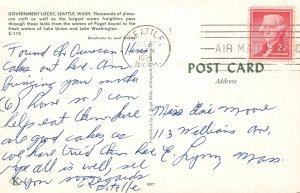 GOVERNMENT LOCKS, SEATTLE, WASH. Thousands of pleas-
ure craft as well as the largest ocean freighters pass
through these locks from the waters of Puget Sound to the
fresh waters of Lake Union and Lake Washington.
C-112
SEATTLE
AIR M
2¢
POST CARD
Address
Found the Duncan Hines
Cakes out here. Am
bringing your mother
(6) have so I can
help eat them for
are good cakes as
we have tried them here
We all is well, all
join you regards
Estelle
Miss Evie Moore
113 Williams Ave.
E. Lynn Mass.